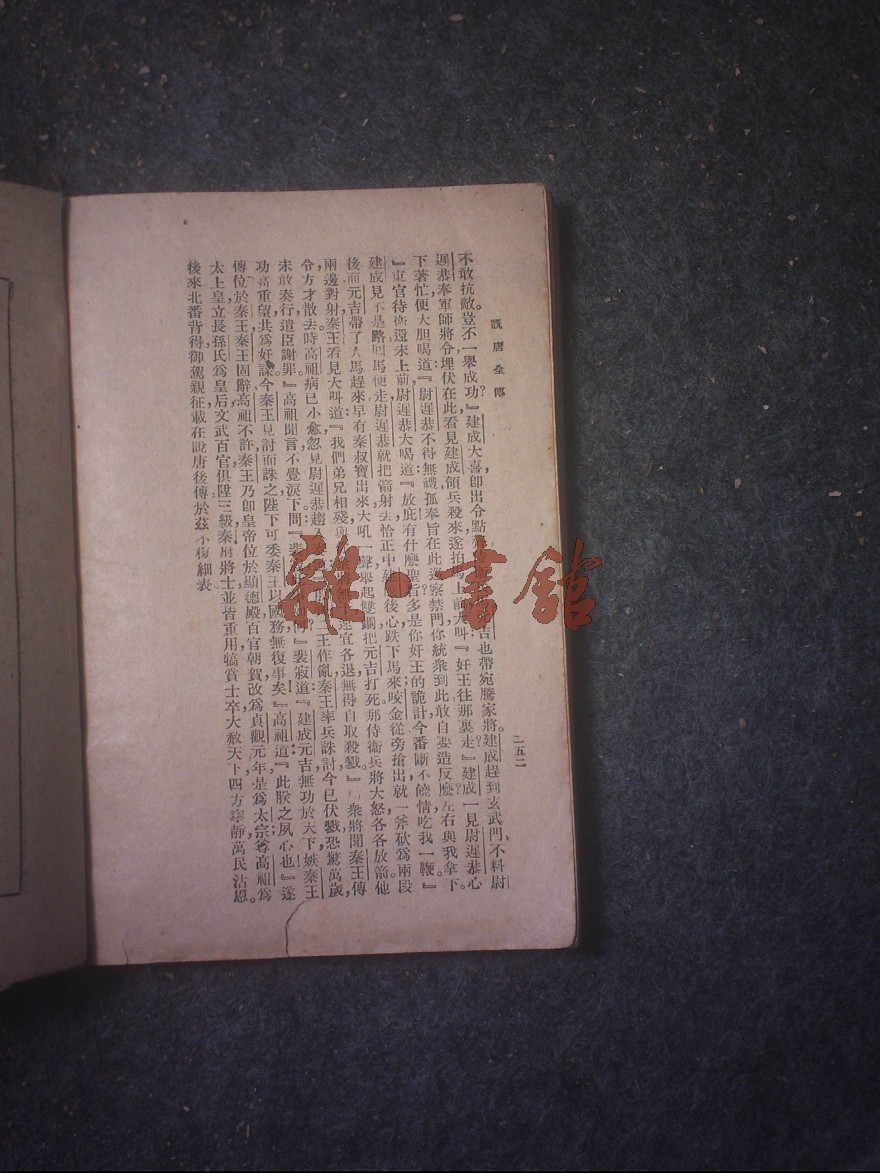 說唐全傳
二五二
不敢抗敵。豈不一舉成功？』建成大喜，卽出令點
吉也帶宛騰家將。建成趕到玄武門，不料尉
遲恭奉軍師將令埋伏在此，看見建成領兵殺來，遂拍馬上前大叫：『奸王往那裏走？』建成一見尉遲恭，心
下著忙，便大胆喝道：『尉遲恭不得無禮，孤奉旨在此巡察禁門，你統衆到此，敢自要造反麼？左右與我拿下。
』東宮侍衛還未上前，尉遲恭大喝道：『放屁！有什麼聖旨？多是你奸王的詭計，今番斷不饒情，吃我一鞭。』
建成見不是路，回馬便走，尉遲恭就把箭射去，恰正中建成後心，跌下馬來，咬金從旁搶出，就一斧砍爲兩段。
後面元吉帶了人馬趕來，早有秦叔寶出來，大吼一聲，舉起雙鐧，把元吉打死。那侍衛兵將大怒，各各放箭，他
兩邊對射，秦王看見大叫道：『我們弟兄相殘，與
宜各退，無得自取殺戮。』衆將聞秦王傳
令，方才散去。時高祖病已小愈，忽見尉遲恭趨入
王作亂，秦王率兵誅討，今已伏戮，恐驚萬歲，
未敢奏行，遣臣謝罪。』高祖聞言，不覺淚下，問
裴寂道：『建成元吉無功於天下，嫉秦王
功高重望，共爲奸謀，今秦王見討而誅之，陛下可委秦王以國務，無復事矣。』高祖道：『此朕之夙心也！』遂
傳位於秦王，秦王固辭，高祖不許，秦王乃卽皇帝位於顯德殿，百官朝賀，改爲貞觀元年，是爲太宗，尊高祖爲
太上皇，立長孫氏爲皇后，文武百官俱陞三級，秦府將士並皆重用，犒賞士卒，大赦天下，四方寧靜，萬民沾恩。
後來北番背得御駕親征，載在說唐後傳，於茲不復細表
雜·書館